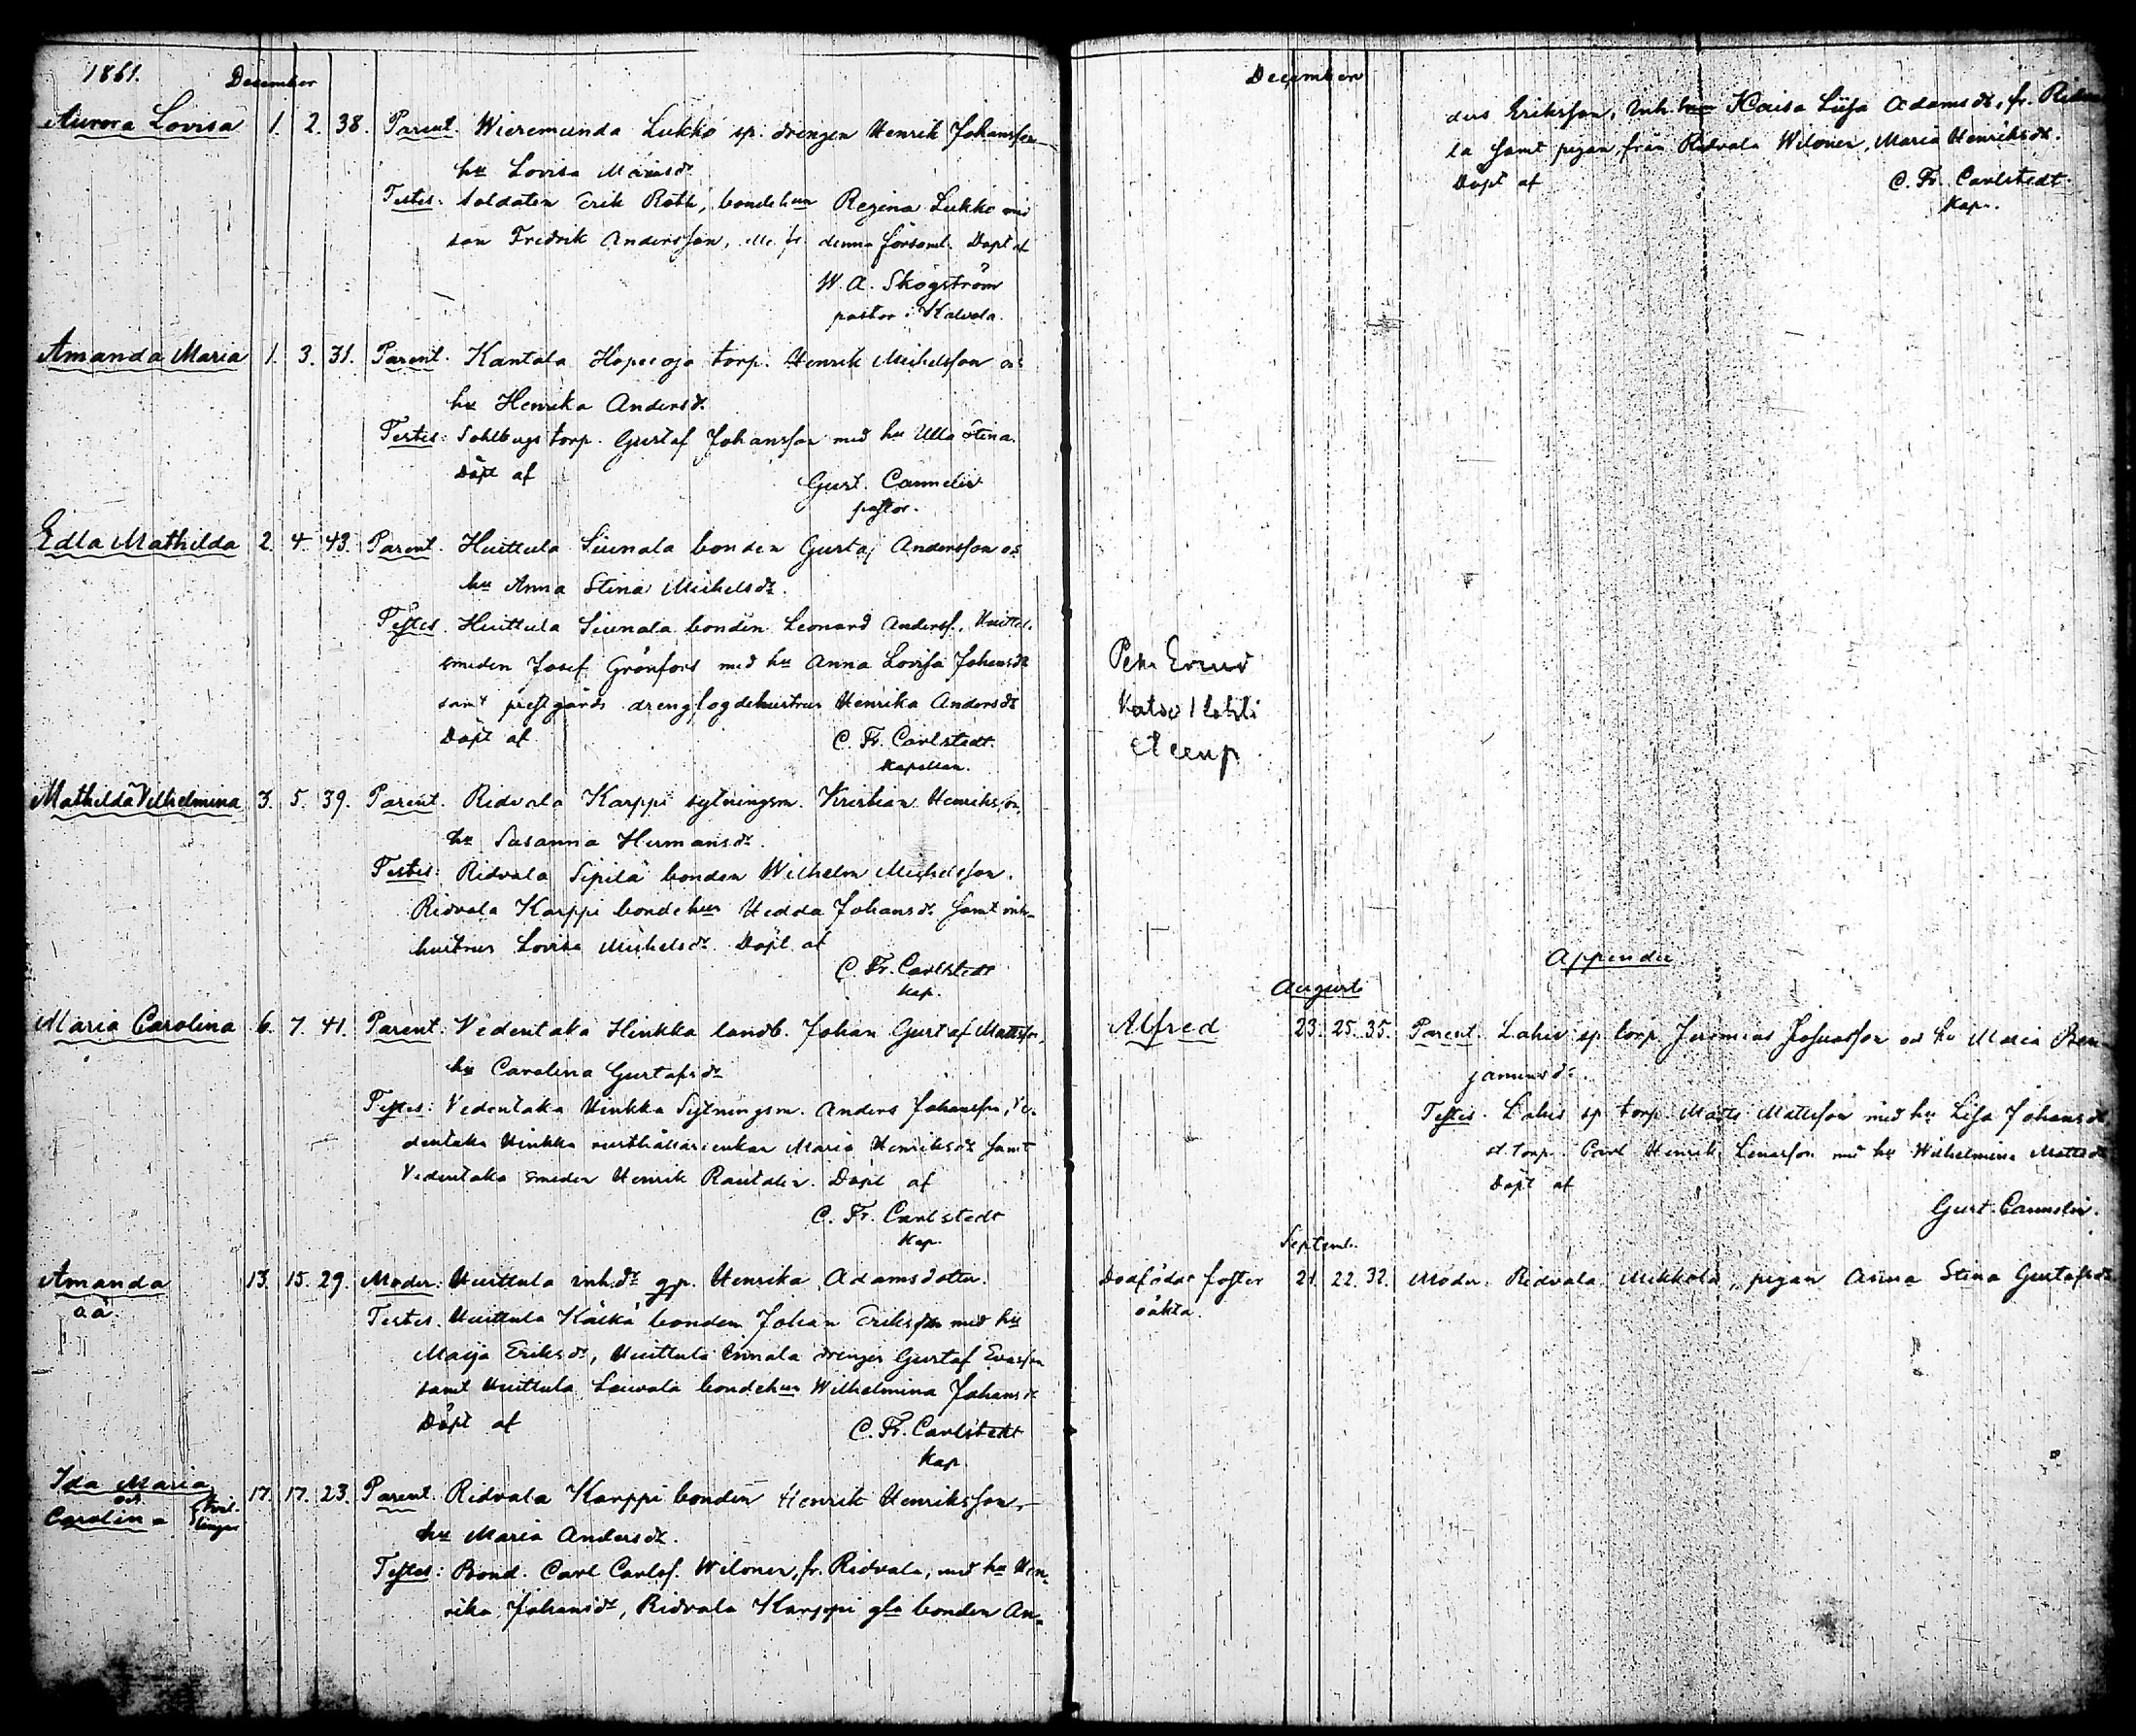 1861. December
Aurora Lovisa 1. 2. 38. Parent. Wieremunda Lukko sp. drengen Henrik Johansson
hu Lovisa
Testes: Soldaten Erik Roth, bondehun Regina Lukko med
son Fredrik Andersson, fr. denna församl. Döpt af
W. A. Skogström
pastor i Kalvola.
Amanda Maria 1. 3. 31. Parent. Kantala Hopeeoja torp. Henrik Michelsson
hu Henrika Andersdr
Testes: torp. Gustaf Johansson med hu Ulla Stina.
Döpt af Gust. Cannelin
pastor.
Edla Mathilda 2. 4. 43. Parent. Huittula Siunala bonden Gustaf Andersson
hu Anna Stina Michelsdr.
Testes. Huittula Siunala bonden Leonard Anderss.
smeden Josef Grönfors med hu Anna Lovisa Johansdr
samt prestgårds drengfogdehustrun Henrika Andersdr
Döpt af C. Fr. Carlstedt.
Kapellan.
Mathilda Vilhelmina 3. 5. 39. Parent. Ridvala Karppi sytningsm. Kristian Henriksson,
hu Susanna Hermansdr.
Testes: Ridvala Sipilä bonden Wilhelm Michelsson.
Ridvala Karppi bondehun Hedda Johansdr samt inh-
hustrun Lovisa Michelsdr. Döpt af
C. Fr. Carlstedt
Kap.
Maria Carolina 6. 7. 41. Parent: Vedentaka Hinkka landb. Johan Gustaf Mattsson,
hu Carolina Gustafsdr
Testes: Vedentaka Hinkka Sytningsm. Anders Johansson, Ve-
dentaka Hinkka Maria Henriksdr samt
Vedentaka smeden Henrik Rautalin. Döpt af
C. Fr. Carlstedt
Kap.
Amanda 13. 15. 29. Moder: Huittula inh.dr gp. Henrika Adamsdotter.
oä.
Testes. Huittula Käikä bonden Johan Eriksson med hu
Maija Eriksdr, Huittula drengen Gustaf
samt Huittula bondehun Wilhelmina Johansdr
Döpt af C. Fr. Carlstedt
Kap.
Ida Maria 17. 17. 23. Parent. Ridvala Karppi bonden Henrik Henriksson,
och
Carolina Tvil-
lingar
hu Maria Andersdr.
Testes: Bond. Carl Carlss. Wiloner, fr. Ridvala, med hu Hen-
rika Johansdr, Ridvala Karppi gla bonden An-
December
ders Eriksson, Inh. Kaisa Liisa Adamsdr, fr. Ridva
la samt pigan från Ridvala Wiloner, Maria Henriksdr.
Döpt af C. Fr. Carlstedt
Kap.
Appendix
Augusti
Alfred 23. 25. 35. Parent. Lahis sp. torp. Jeremias Josuasson hu Maria Ben-
jaminsdr.
Testes. Lahis sp torp. Matts Mattsson med hu Lisa Johansdr
st. torp. Carl Henrik med hu Wilhelmina Mattsdr
Döpt af
Gust. Cannelin.
Septemb.
Dödfödde foster 21. 22. 32. Moder. Ridvala Mikkola, pigan Anna Stina Gustafsdr
oäkta.